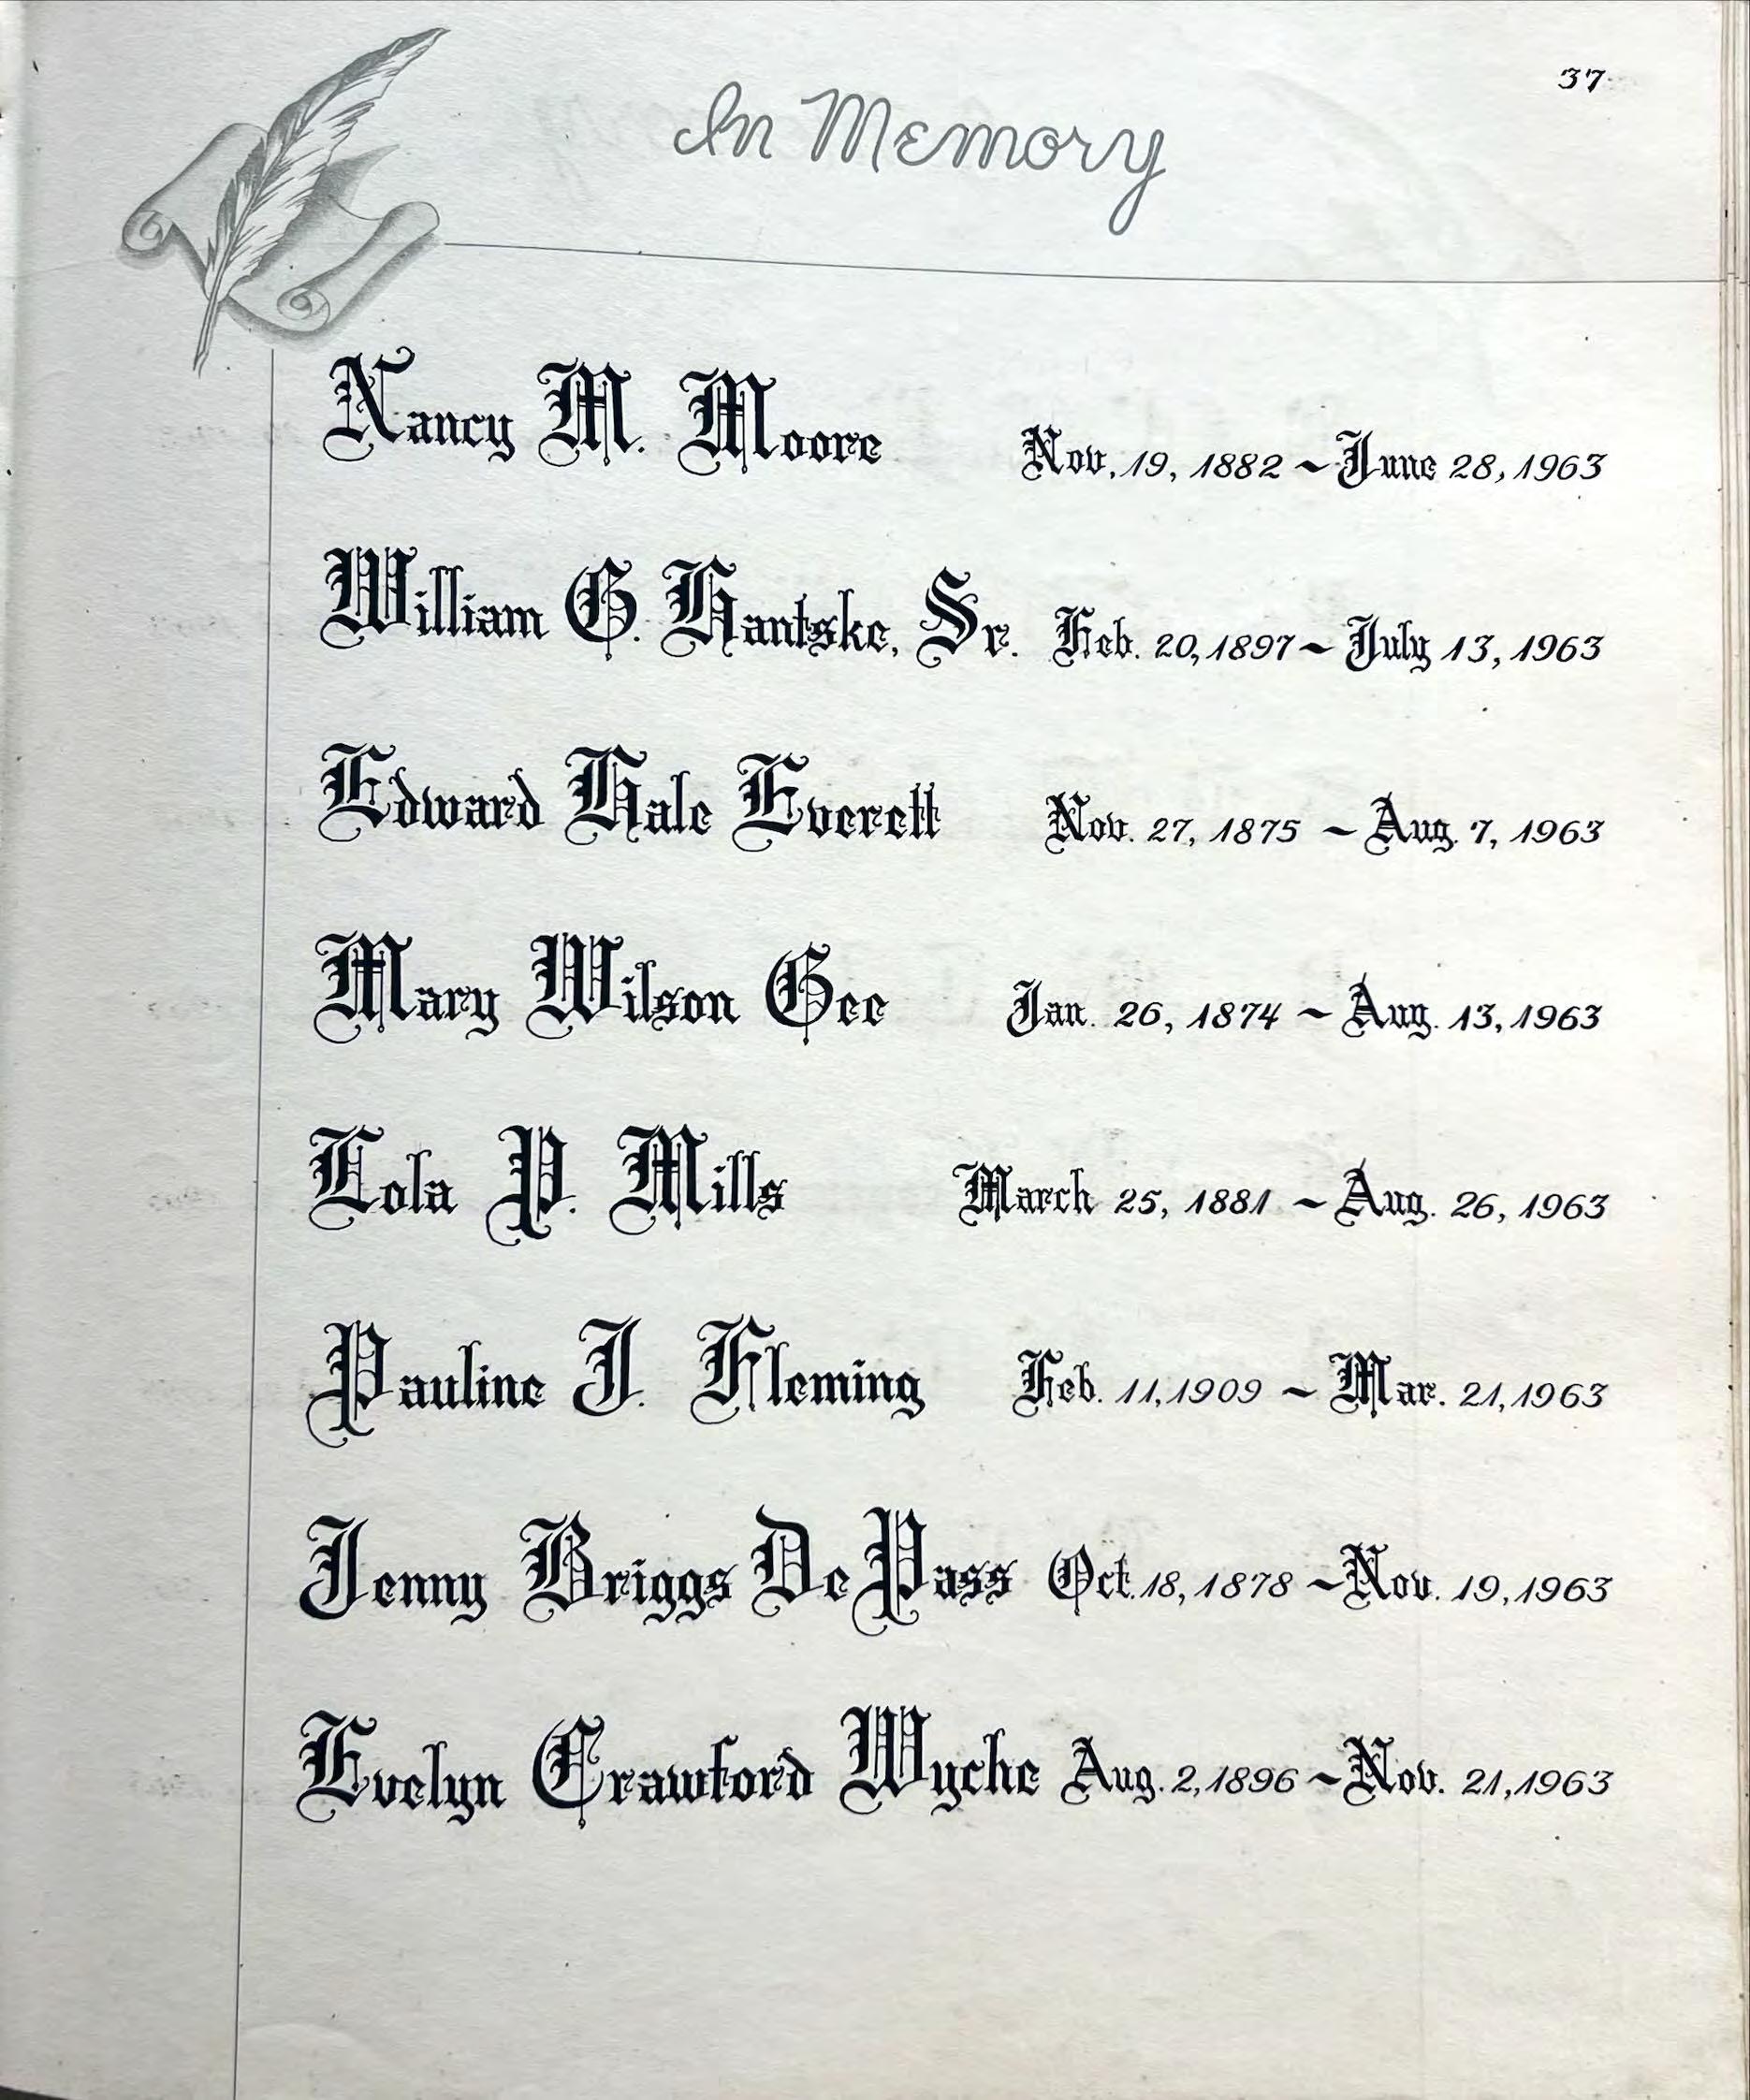 37
In Memory
Nancy M. Moore Nov. 19, 1882 ~ June 28, 1963
William G. Hantske, Sr. Feb. 20, 1897 ~ July 13, 1963
Edward Hale Everett Nov. 27, 1875 ~ Aug. 7, 1963
Mary Wilson Gee Jan. 26, 1874 ~ Aug. 13, 1963
Lola P. Mills March 25, 1881 ~ Aug. 26, 1963
Pauline J. Fleming Feb. 11, 1909 ~ Mar. 21, 1963
Jenny Briggs DePass Oct. 18, 1878 ~ Nov. 19, 1963
Evelyn Crawford Wyche Aug. 2, 1896 ~ Nov. 21, 1963